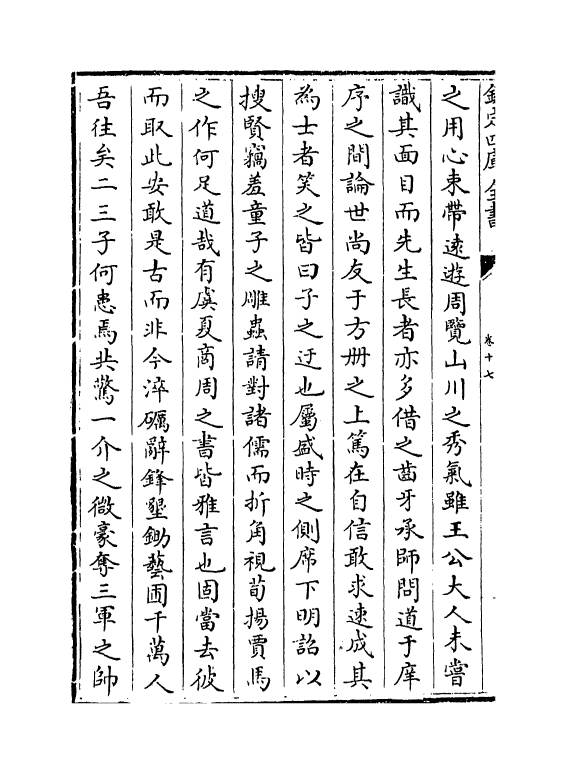 欽定四庫全書
卷十七
之用心束帶遠遊周覽山川之秀氣雖王公大人未嘗
識其面目而先生長者亦多借之齒牙承師問道于庠
序之間論世尚友于方冊之上篤在自信敢求速成其
為士者笑之皆曰子之迂也屬盛時之側席下明詔以
搜賢竊羞童子之雕蟲請對諸儒而折角視荀揚賈馬
之作何足道哉有虞夏商周之書皆雅言也固當去彼
而取此安敢是古而非今淬礪辭鋒墾鋤藝圃千萬人
吾往矣二三子何患焉共驚一介之微豪奪三軍之帥